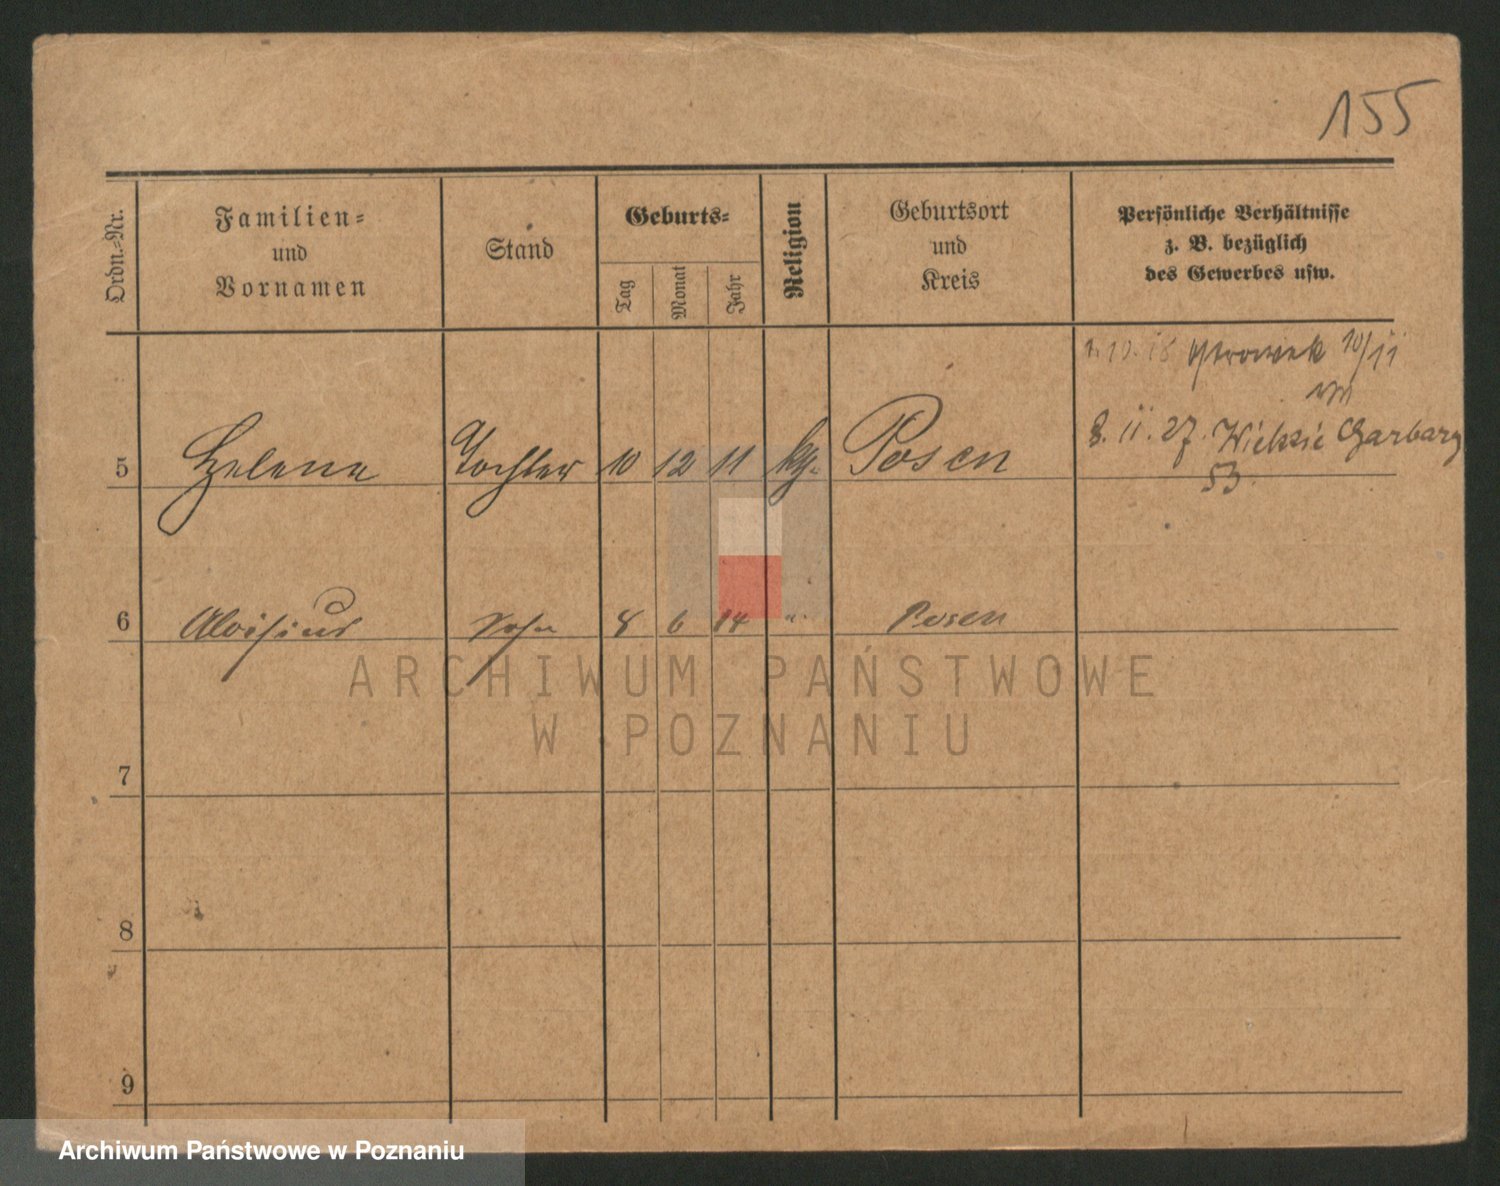 155
Ordn.-Nr.
Familien-
und
Vornamen
Stand
Geburts-
Tag
Monat
Jahr
Religion
Geburtsort
und
Kreis
Persönliche Verhältnisse
z. B. bezüglich
des Gewerbes usw.
1.10.18 Ostrowek 10/11
5 Helene Tochter 10 12 11 kth. Posen
8.11.27. Wielkie Garbary
53.
6 Aloisius Sohn 8 6 14 " Posen
ARCHIWUM PAŃSTWOWE
W POZNANIU
7
8
9
Archiwum Państwowe w Poznaniu